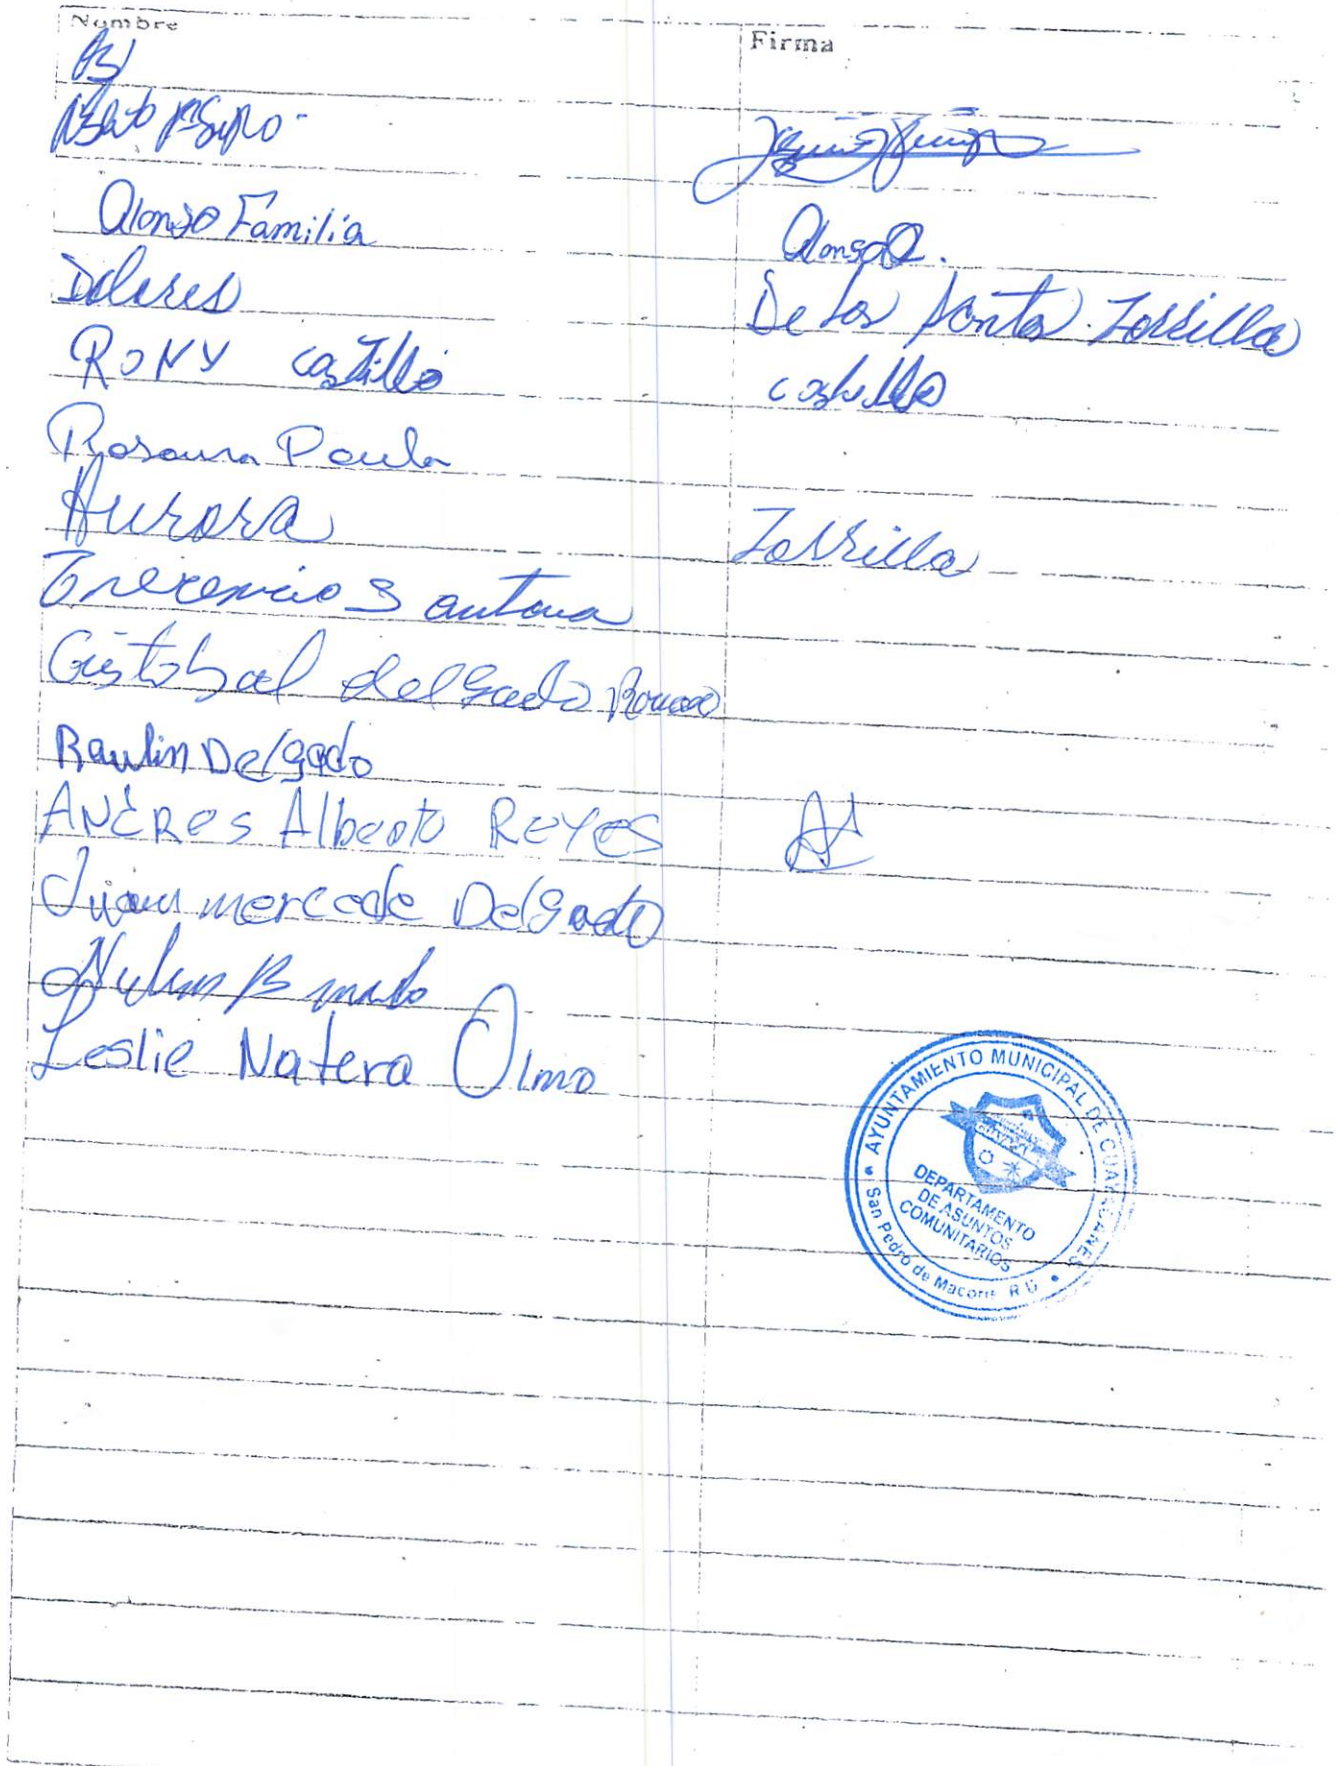 Nombre Firma
Alonso Familia Alonso
Dolores De Los Santos Zorrilla
RONY castillo castillo
Rosaura Paula
Aurora Zorrilla
Santana
Cristobal delgado
Raulin Delgado
ANDRes Alberto REYES
Juan mercede Delgado
Leslie Natera Olmo
AYUNTAMIENTO MUNICIPAL DE GUAYACANES
DEPARTAMENTO
DE ASUNTOS
COMUNITARIOS
San Pedro de Macorís R.D.